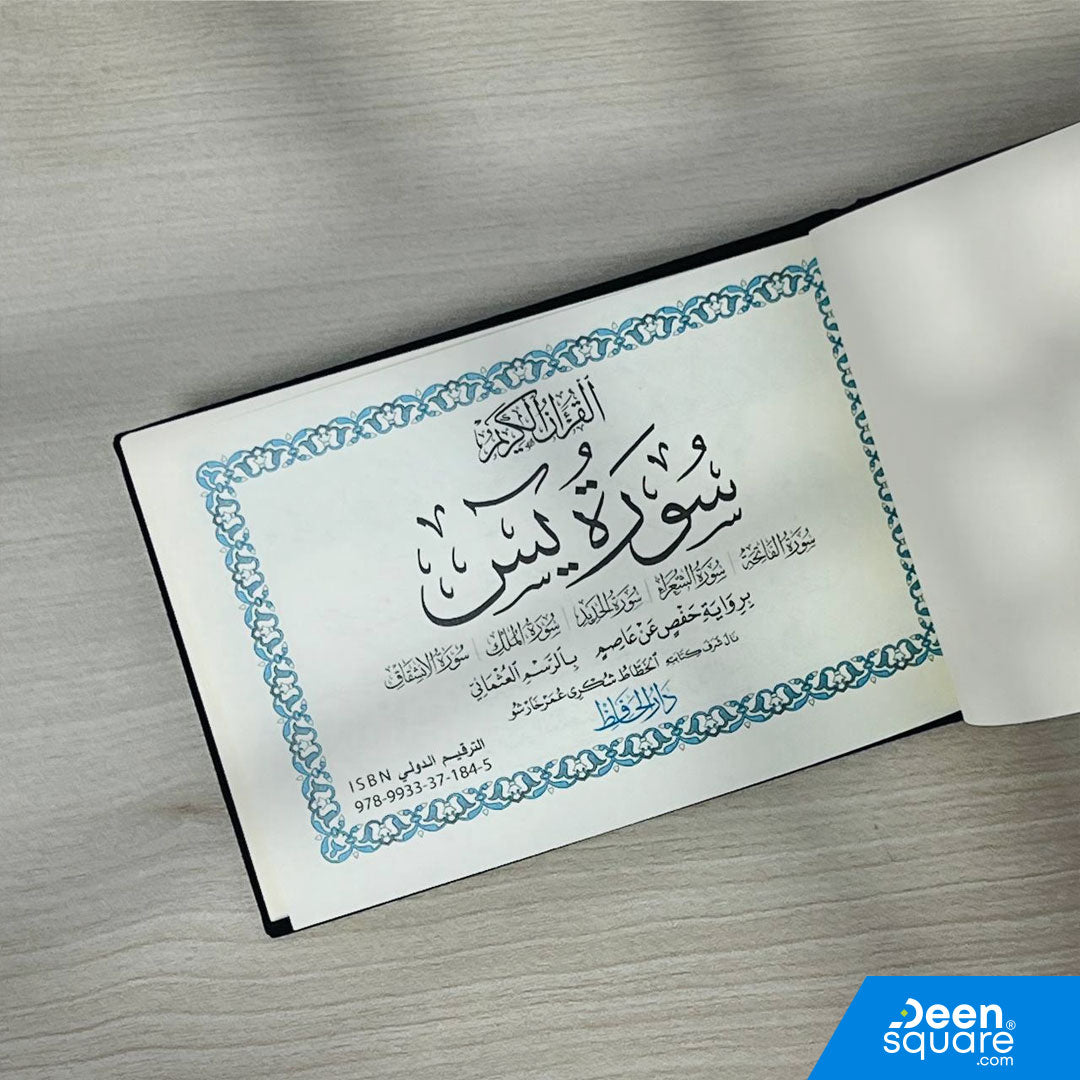 القرآن الكريم
سُورَةُ يس
سورة الفاتحة | سورة الشعراء | سورة الحديد | سورة الملك | سورة الانشقاق
بِرِوَايَةِ حَفْصٍ عَنْ عَاصِمٍ بِالرَّسْمِ العُثْمَانِي
نال شرف كتابته الخطاط شكري عمر خارشو
دار الحفاظ
الترقيم الدولي ISBN
978-9933-37-184-5
Deen®
square
.com